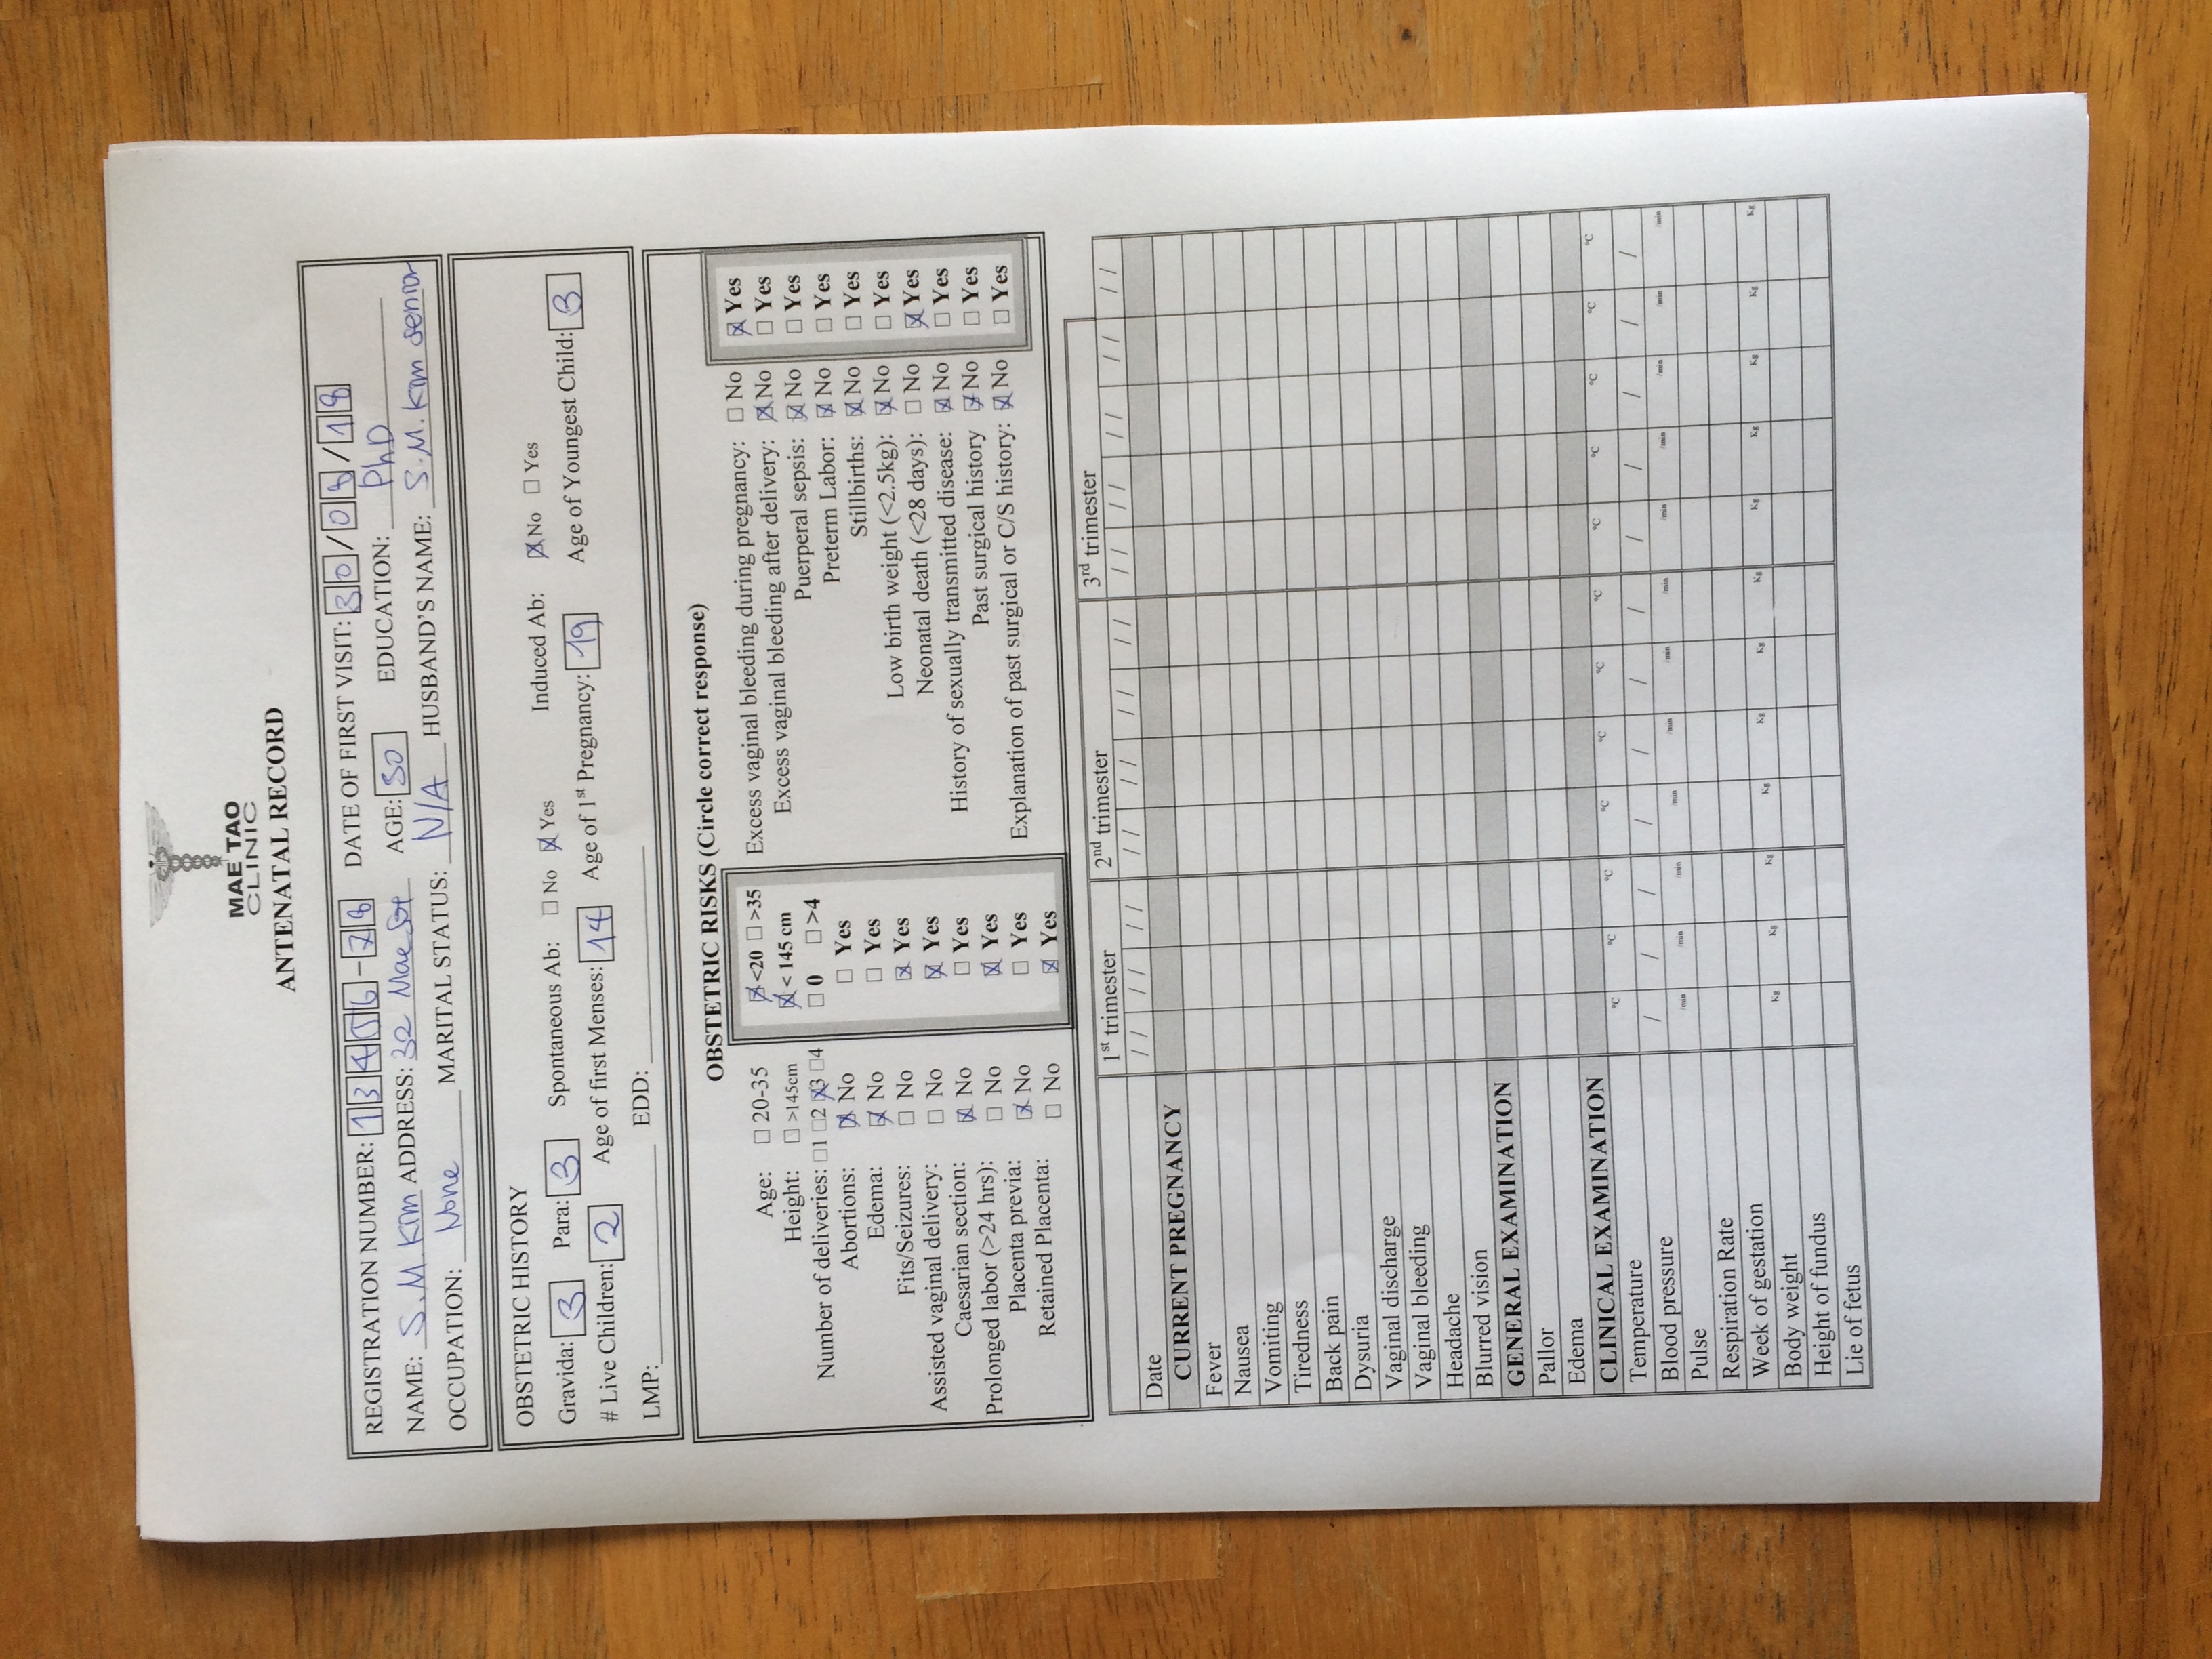 MAE TAO
CLINIC
ANTENATAL RECORD
REGISTRATION NUMBER: 13456-78 DATE OF FIRST VISIT: 30/08/18
NAME: S.M. Kim ADDRESS: 32 Mae Sot AGE: 30 EDUCATION: PhD
OCCUPATION: None MARITAL STATUS: N/A HUSBAND'S NAME: S.M. Kim senior
OBSTETRIC HISTORY
Gravida: 3 Para: 3 Spontaneous Ab: ☐ No ☒ Yes Induced Ab: ☒ No ☐ Yes
# Live Children: 2 Age of first Menses: 14 Age of 1st Pregnancy: 19 Age of Youngest Child: 3
LMP: EDD:
OBSTETRIC RISKS (Circle correct response)
Age: ☐ 20-35 ☒ <20 ☐ >35
Height: ☐ >145cm ☒ < 145 cm
Number of deliveries: ☐1 ☐2 ☒3 ☐4 ☐ 0 ☐ >4
Abortions: ☒ No ☐ Yes
Edema: ☒ No ☐ Yes
Fits/Seizures: ☐ No ☒ Yes
Assisted vaginal delivery: ☐ No ☒ Yes
Caesarian section: ☒ No ☐ Yes
Prolonged labor (>24 hrs): ☐ No ☒ Yes
Placenta previa: ☒ No ☐ Yes
Retained Placenta: ☐ No ☒ Yes
Excess vaginal bleeding during pregnancy: ☐ No ☒ Yes
Excess vaginal bleeding after delivery: ☒ No ☐ Yes
Puerperal sepsis: ☒ No ☐ Yes
Preterm Labor: ☒ No ☐ Yes
Stillbirths: ☒ No ☐ Yes
Low birth weight (<2.5kg): ☒ No ☐ Yes
Neonatal death (<28 days): ☐ No ☒ Yes
History of sexually transmitted disease: ☒ No ☐ Yes
Past surgical history ☒ No ☐ Yes
Explanation of past surgical or C/S history: ☒ No ☐ Yes
1st trimester 2nd trimester 3rd trimester
Date / / / / / / / / / / / / / / / / / / / / / / / /
CURRENT PREGNANCY
Fever
Nausea
Vomiting
Tiredness
Back pain
Dysuria
Vaginal discharge
Vaginal bleeding
Headache
Blurred vision
GENERAL EXAMINATION
Pallor
Edema
CLINICAL EXAMINATION
Temperature °C °C °C °C °C °C °C °C °C °C °C °C
Blood pressure / / / / / / / / / / / /
Pulse /min /min /min /min /min /min /min /min /min /min /min /min
Respiration Rate
Week of gestation
Body weight Kg Kg Kg Kg Kg Kg Kg Kg Kg Kg Kg Kg
Height of fundus
Lie of fetus